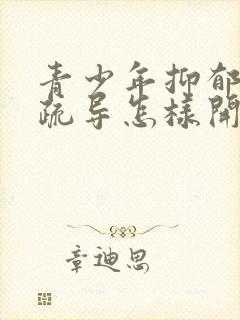 青少年抑郁
疏导怎様開
章迪思